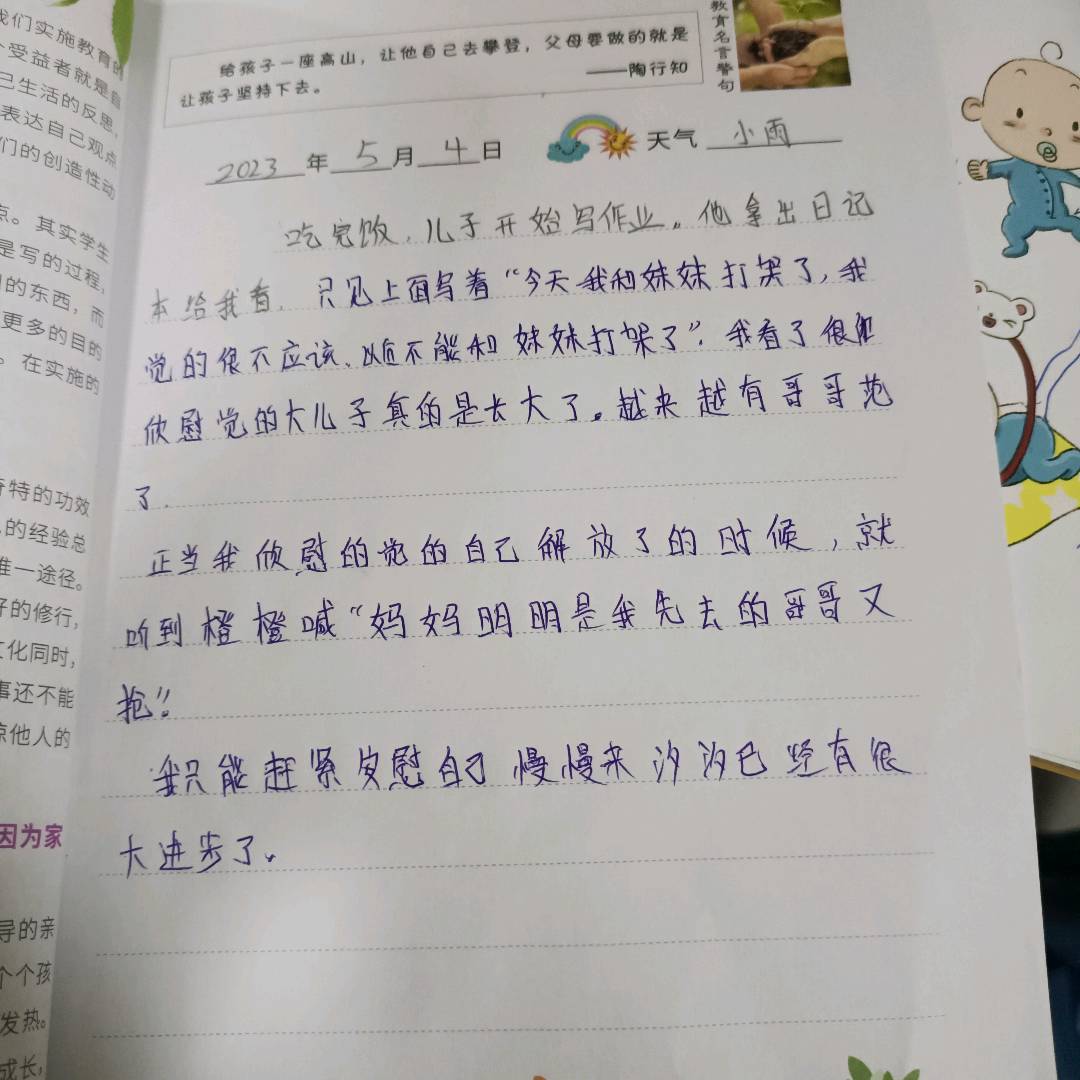 我们实施教育的
受益者就是自
己生活的反思,
表达自己观点
们的创造性动
点。其实学生
是写的过程,
的东西，而
更多的目的
。在实施的
奇特的功效
的经验总
唯一途径。
好的修行,
文化同时,
事还不能
谅他人的
因为家
导的亲
个个孩
发热。
成长,
给孩子一座高山，让他自己去攀登，父母要做的就是
让孩子坚持下去。
——陶行知
教育名言警句
2023年5月4日 天气 小雨
吃完饭，儿子开始写作业。他拿出日记
本给我看，只见上面写着“今天我和妹妹打架了，我
觉的很不应该、以后不能和妹妹打架了”。我看了很
欣慰觉的大儿子真的是长大了。越来越有哥哥范
了.
正当我欣慰的觉的自己解放了的时候，就
听到橙橙喊“妈妈明明是我先去的哥哥又
抢”!
我只能赶紧安慰自己慢慢来汐汐已经有很
大进步了。